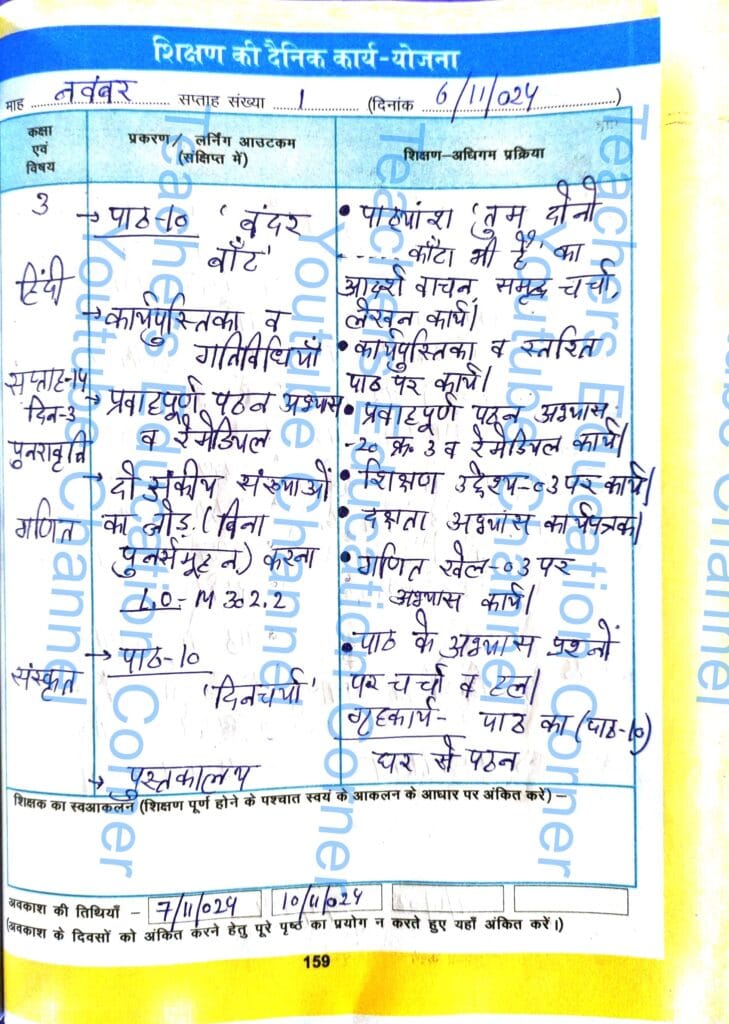 शिक्षण की दैनिक कार्य-योजना
माह नवंबर सप्ताह संख्या 1 (दिनांक 6/11/024)
कक्षा एवं विषय
प्रकरण/ लर्निंग आउटकम (संक्षिप्त में)
शिक्षण-अधिगम प्रक्रिया
3
हिंदी
सप्ताह-14
दिन-3
पुनरावृत्ति
गणित
संस्कृत
→ पाठ-10 'बंदर
बाँट'
→ कार्यपुस्तिका व
गतिविधियाँ
→ प्रवाहपूर्ण पठन अभ्यास
व रेमेडियल
→ दो अंकीय संख्याओं
का जोड़ (बिना
पुनर्समूहन) करना
L.O.- M 302.2
→ पाठ-10
'दिनचर्या'
→ पुस्तकालय
• पाठ्यांश 'तुम दोनो
----- काँटा भी है' का
आदर्श वाचन, समृद्ध चर्चा,
लेखन कार्य।
• कार्यपुस्तिका व स्तरित
पाठ पर कार्य।
• प्रवाहपूर्ण पठन अभ्यास
-20 क्र 3 व रेमेडियल कार्य।
• शिक्षण उद्देश्य-03 पर कार्य।
• दक्षता अभ्यास कार्यपत्रक।
• गणित खेल-03 पर
अभ्यास कार्य।
• पाठ के अभ्यास प्रश्नों
पर चर्चा व हल।
गृहकार्य- पाठ का (पाठ-10)
घर से पठन
शिक्षक का स्वआकलन (शिक्षण पूर्ण होने के पश्चात स्वयं के आकलन के आधार पर अंकित करें) –
अवकाश की तिथियाँ – 7/11/024 10/11/024
(अवकाश के दिवसों को अंकित करने हेतु पूरे पृष्ठ का प्रयोग न करते हुए यहाँ अंकित करें।)
159
Teachers Education Corner
Youtube Channel
Teachers Education Corner
Youtube Channel
Teachers Education Corner
Youtube Channel